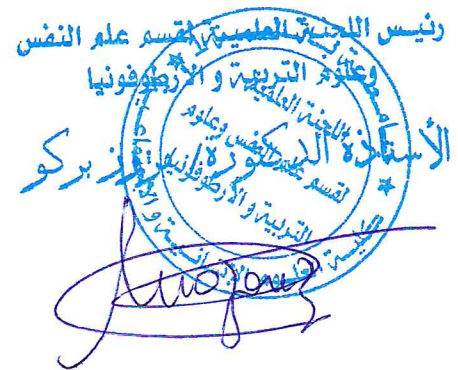 رئيس اللجنة العلمية لقسم علم النفس
وعلوم التربية و الأرطوفونيا
الأستاذة الدكتورة/ بركو
اللجنة العلمية
لقسم علم النفس وعلوم
التربية و الأرطوفونيا
كلية العلوم الإنسانية و